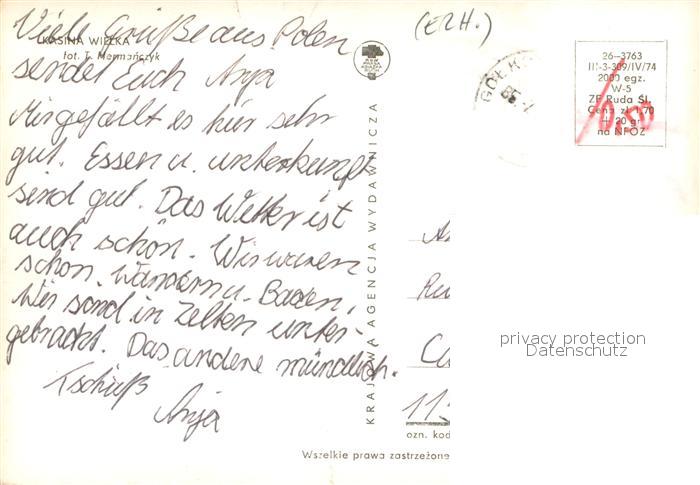 Viele Grüße aus Polen
KASINA WIELKA
fot. T. Hermańczyk
sendet Euch Anja
Mir gefällt es hier sehr
gut. Essen u. unterkunft
sind gut. Das Wetter ist
auch schön. Wir waren
schon. Wandern u. Baden.
Wir sind in Zelten unter-
gebracht. Das andere mündlich.
Tschüß
Anja
(ERH.)
KRAJOWA AGENCJA WYDAWNICZA
26-3763
III-3-309/IV/74
2000 egz.
W-5
ZP Ruda Śl.
Cena zł 70
+ 20 gr
na NFOZ
privacy protection
Datenschutz
11
ozn. kod
Wszelkie prawa zastrzeżone